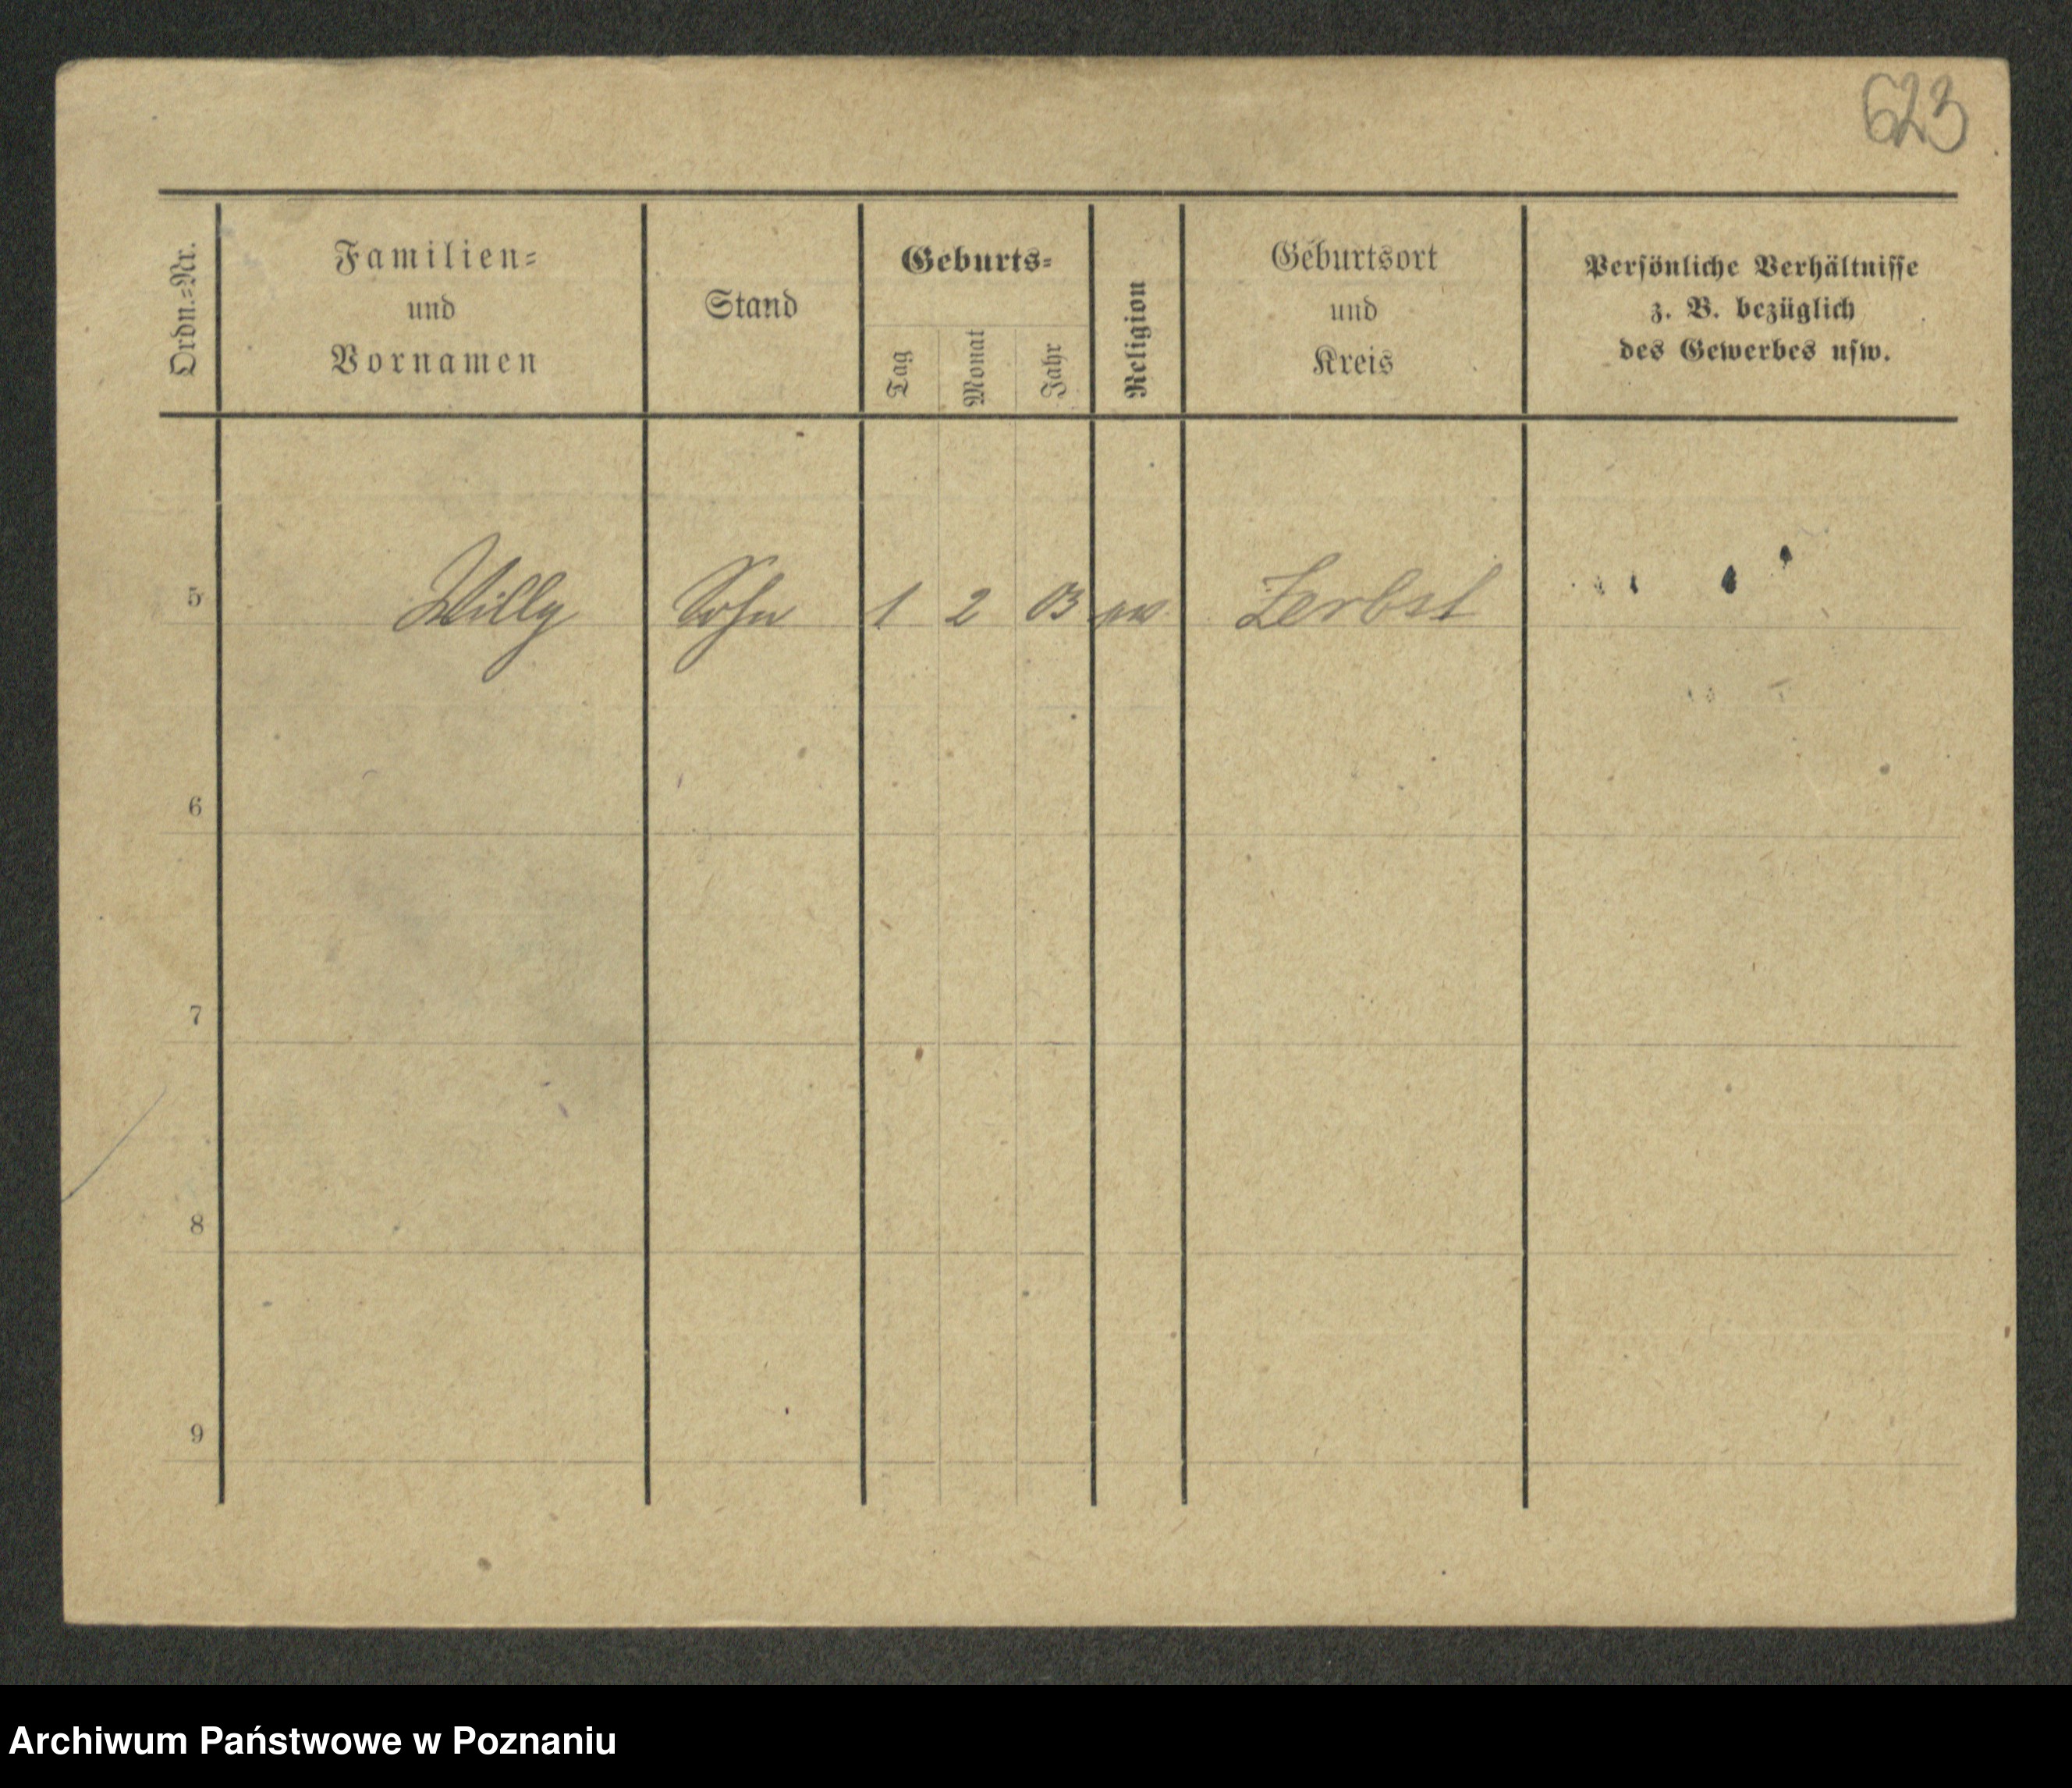 623
Ordn.=Nr.
Familien=
und
Vornamen
Stand
Geburts=
Tag
Monat
Jahr
Religion
Geburtsort
und
Kreis
Persönliche Verhältnisse
z. B. bezüglich
des Gewerbes usw.
5 Willy Sohn 1 2 03 ev Zerbst
6
7
8
9
Archiwum Państwowe w Poznaniu